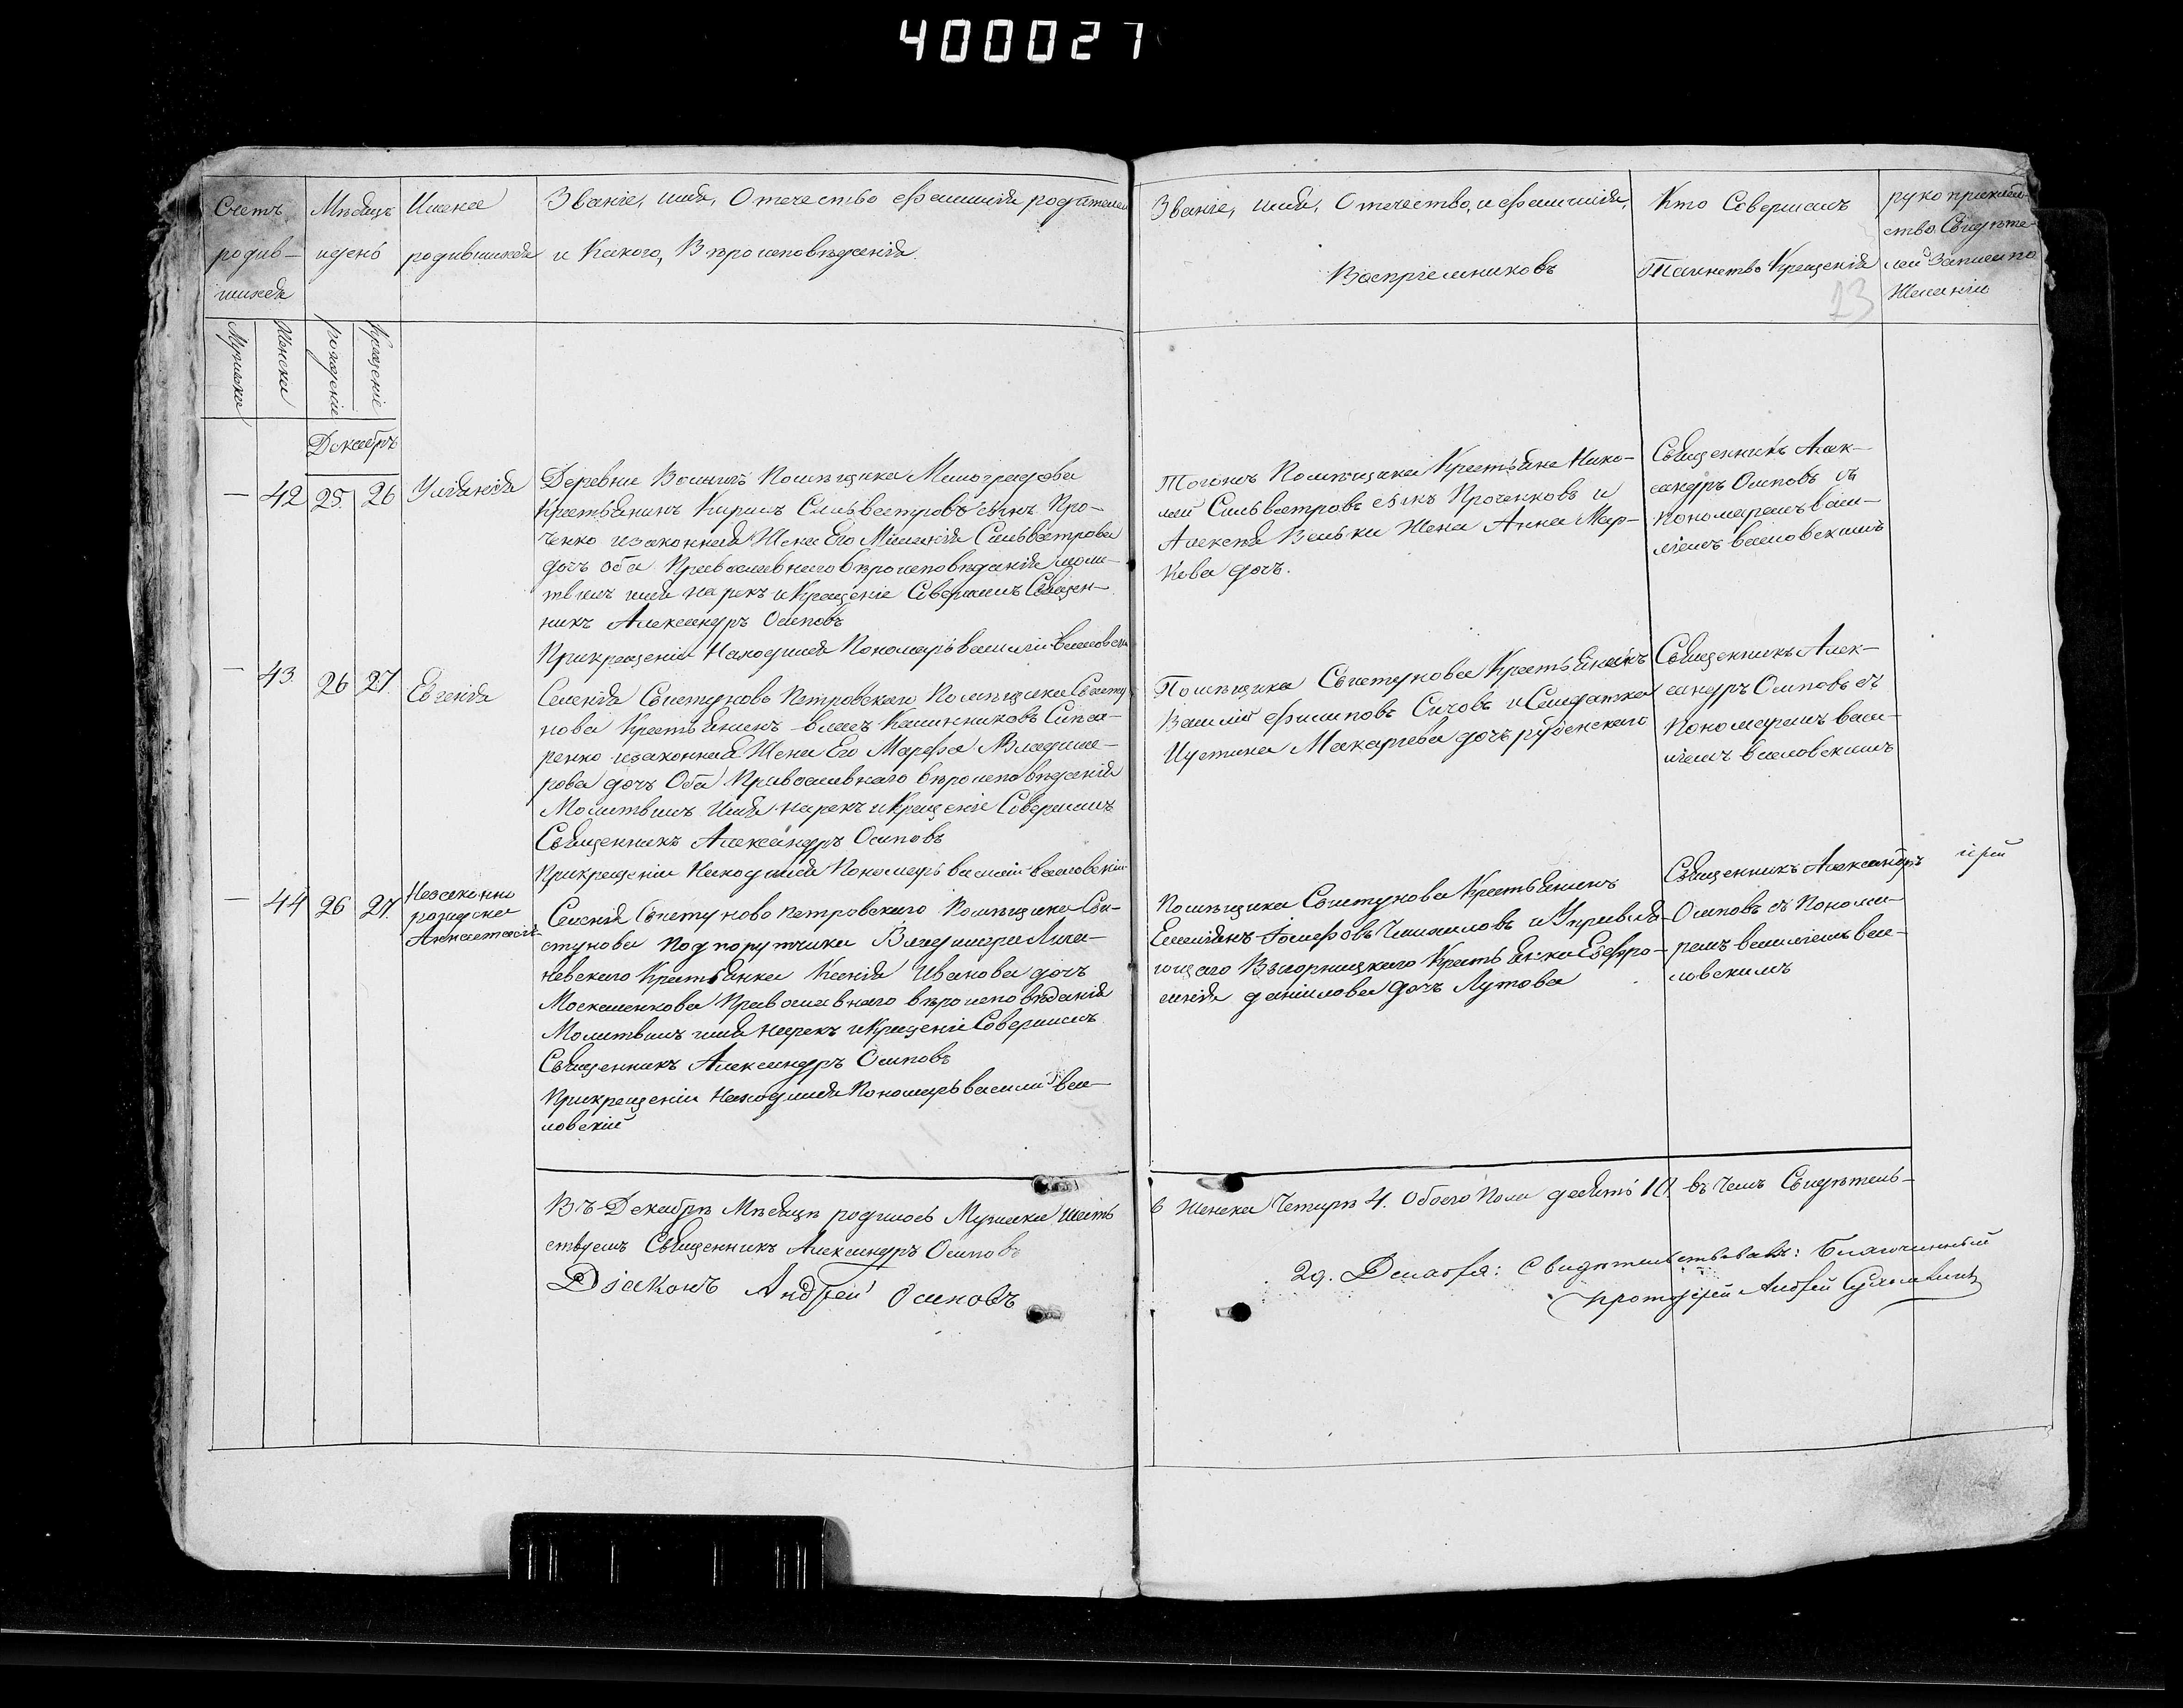 400027
Счетъ родив-шихся
Мѣсяцъ и день
Имена родившихся
Званіе, имя, Отечество и фамилія родителей
и Какого, Вѣроисповѣданія
Званіе, имя, Отечество, и фамилія,
Воспріемниковъ
Кто Совершалъ
Таинство Крещенія
рукоприклад-
ство Свидѣте-
лей Записи по
Желанію
23
Мужеска
Женска
рожденіе
Крещеніе
Декабрь
— 42 25. 26 Уліянія
Деревни Помѣщика Милоградова
Крестьянинъ Кирилъ Сильвестровъ сынъ Про-
ченко изаконная Жена Его Меланія Сильвестрова
дочь оба Православнаго вѣроисповѣданія моли-
твилъ имя нарекъ и Крещеніе Совершилъ Священ-
никъ Александръ Осиповъ
Прикрещеніи Находился Пономарь василій
Тогожъ Помѣщика Крестьяне Нико-
лай Сильвестровъ сынъ Проченковъ и
Алексѣя Вельки Жена Анна Мар-
кова дочь.
Священникъ Алек-
сандръ Осиповъ съ
Пономаремъ васи-
ліемъ василовскимъ
— 43. 26 27 Евгенія
Селенія Свистунова Петровскаго Помѣщика Свисту
нова Крестьянинъ власъ Калинниковъ
ренко изаконная Жена Его Марфа Владиме-
рова дочь Оба Православнаго вѣроисповѣданія
Молитвилъ Имя нарекъ и Крещеніе Совершилъ
Священникъ Александръ Осиповъ
Прикрещеніи Находился Пономарь василій василовскій
Помѣщика Свистунова Крестьянинъ
Василій Филиповъ Сичовъ и Солдатка
Иустина Макарьева дочь
Священникъ Алек-
сандръ Осиповъ съ
Пономаремъ васи-
ліемъ василовскимъ
— 44 26 27. Незаконно
рождена
Анастасія
Селенія Свистуново Петровского Помѣщика Сви-
стунова Подпорутчика Владимира
невскаго Крестьянка Ксенія Иванова дочь
Москаленкова Православнаго вѣроисповѣданія
Молитвилъ имя нарекъ и Крещеніе Совершилъ
Священникъ Александръ Осиповъ
Прикрещеніи Находился Пономарь василій васи-
ловскій
Помѣщика Свистунова Крестьянинъ
Емеліянъ Іосифовъ и Управля-
ющаго Крестьянка Евфро-
синія даніилова дочь Лутова
Священникъ Александръ
Осиповъ съ Понома-
ремъ василіемъ васи-
ловскимъ
Въ Декабрѣ Мѣсяцѣ родилось Мужеска шесть
6 Женска Четыре 4. Обоего Пола десять 10 въ Чемъ Свидѣтель-
ствуемъ Священникъ Александръ Осиповъ
Діаконъ Андрей Осиповъ
29. Декабря: Свидѣтельствовалъ: Благочинный
протоіерей Андрей